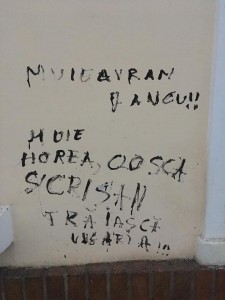 MUIE AVRAM
IANCU!!
MUIE
HOREA, CLOȘCA
ȘI CRIȘAN
TRĂIASCĂ
UNGARIA!!!